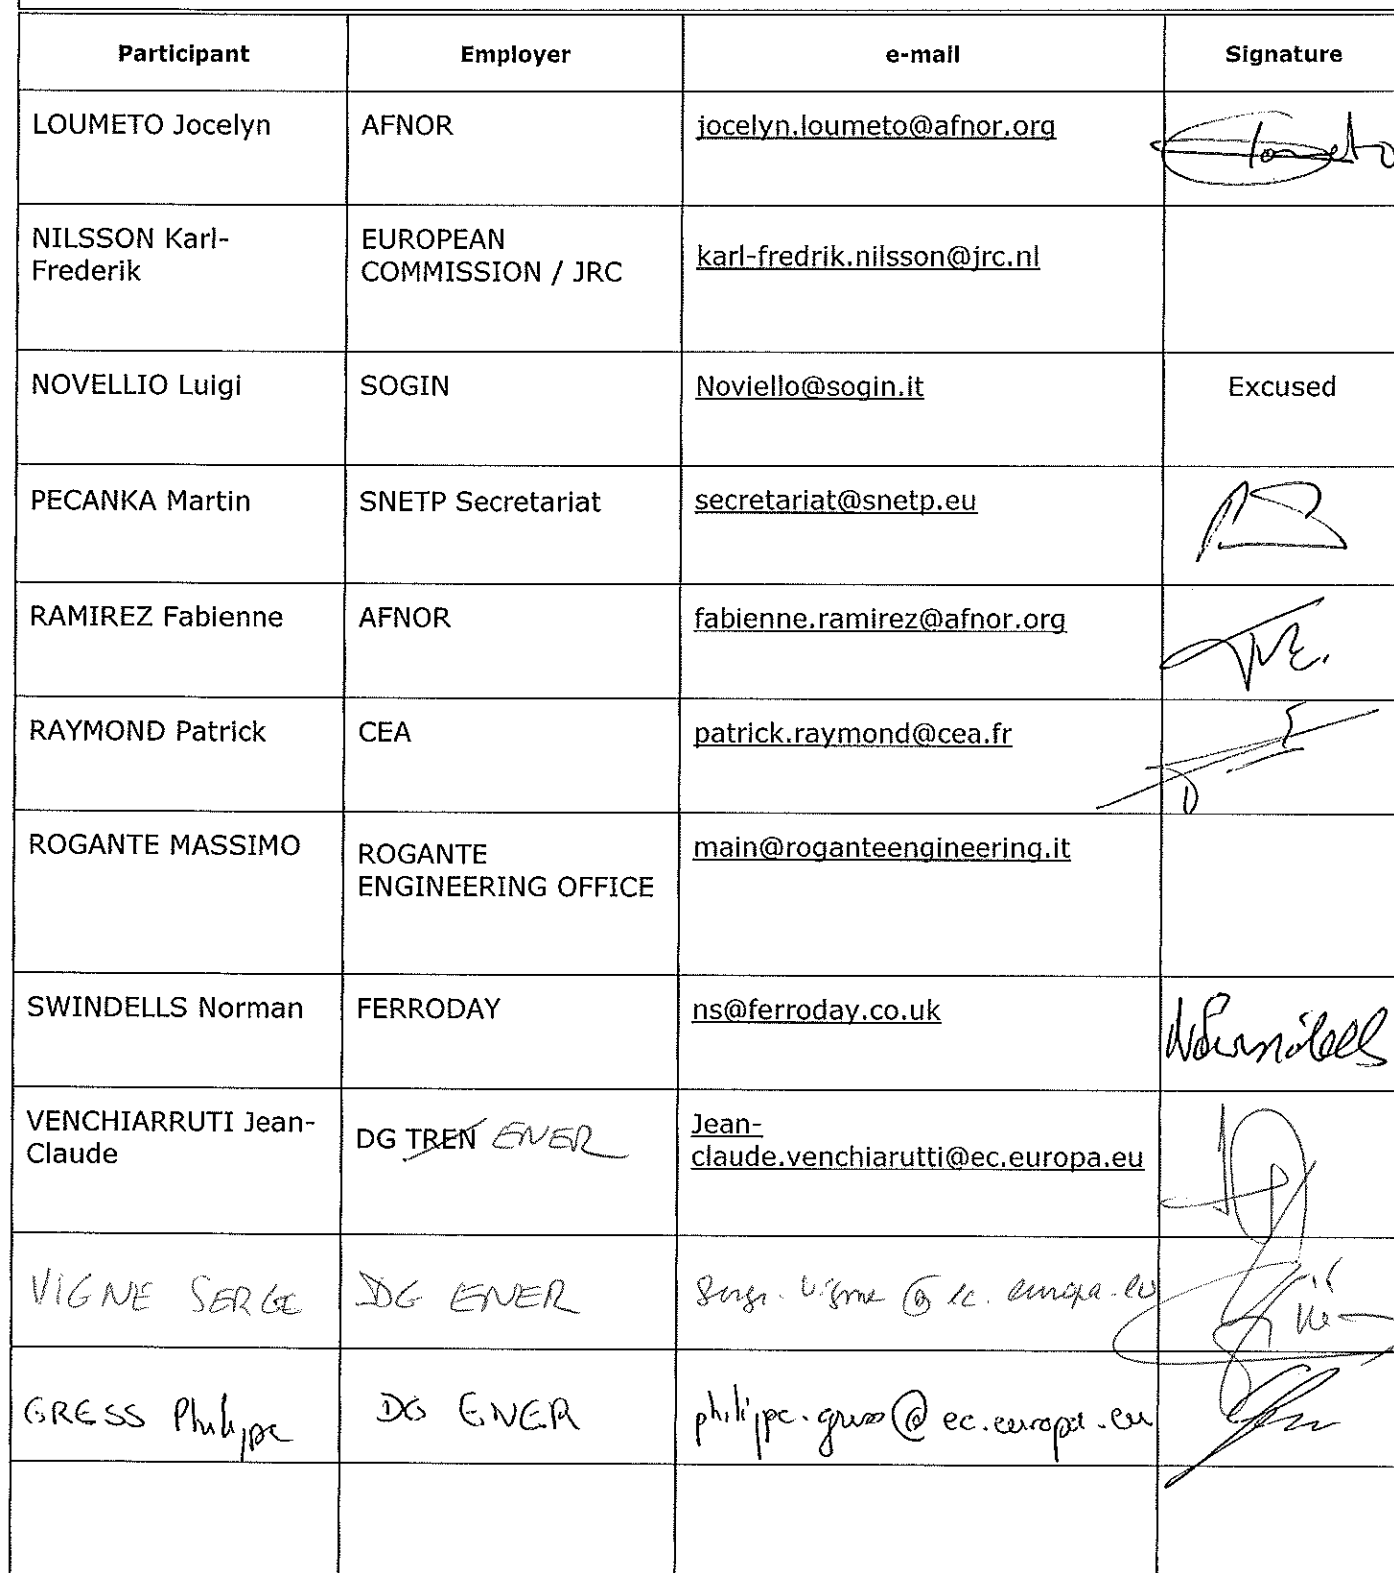 Participant Employer e-mail Signature
LOUMETO Jocelyn AFNOR jocelyn.loumeto@afnor.org Loumeto
NILSSON Karl- EUROPEAN
Frederik COMMISSION / JRC karl-fredrik.nilsson@jrc.nl
NOVELLIO Luigi SOGIN Noviello@sogin.it Excused
PECANKA Martin SNETP Secretariat secretariat@snetp.eu
RAMIREZ Fabienne AFNOR fabienne.ramirez@afnor.org
RAYMOND Patrick CEA patrick.raymond@cea.fr
ROGANTE MASSIMO ROGANTE main@roganteengineering.it
ENGINEERING OFFICE
SWINDELLS Norman FERRODAY ns@ferroday.co.uk NSwindells
VENCHIARRUTI Jean- DG TREN ENER Jean-
Claude claude.venchiarutti@ec.europa.eu
VIGNE SERGE DG ENER Serge.Vigne@ec.europa.eu
GRESS Philippe DG ENER philippe.gress@ec.europa.eu